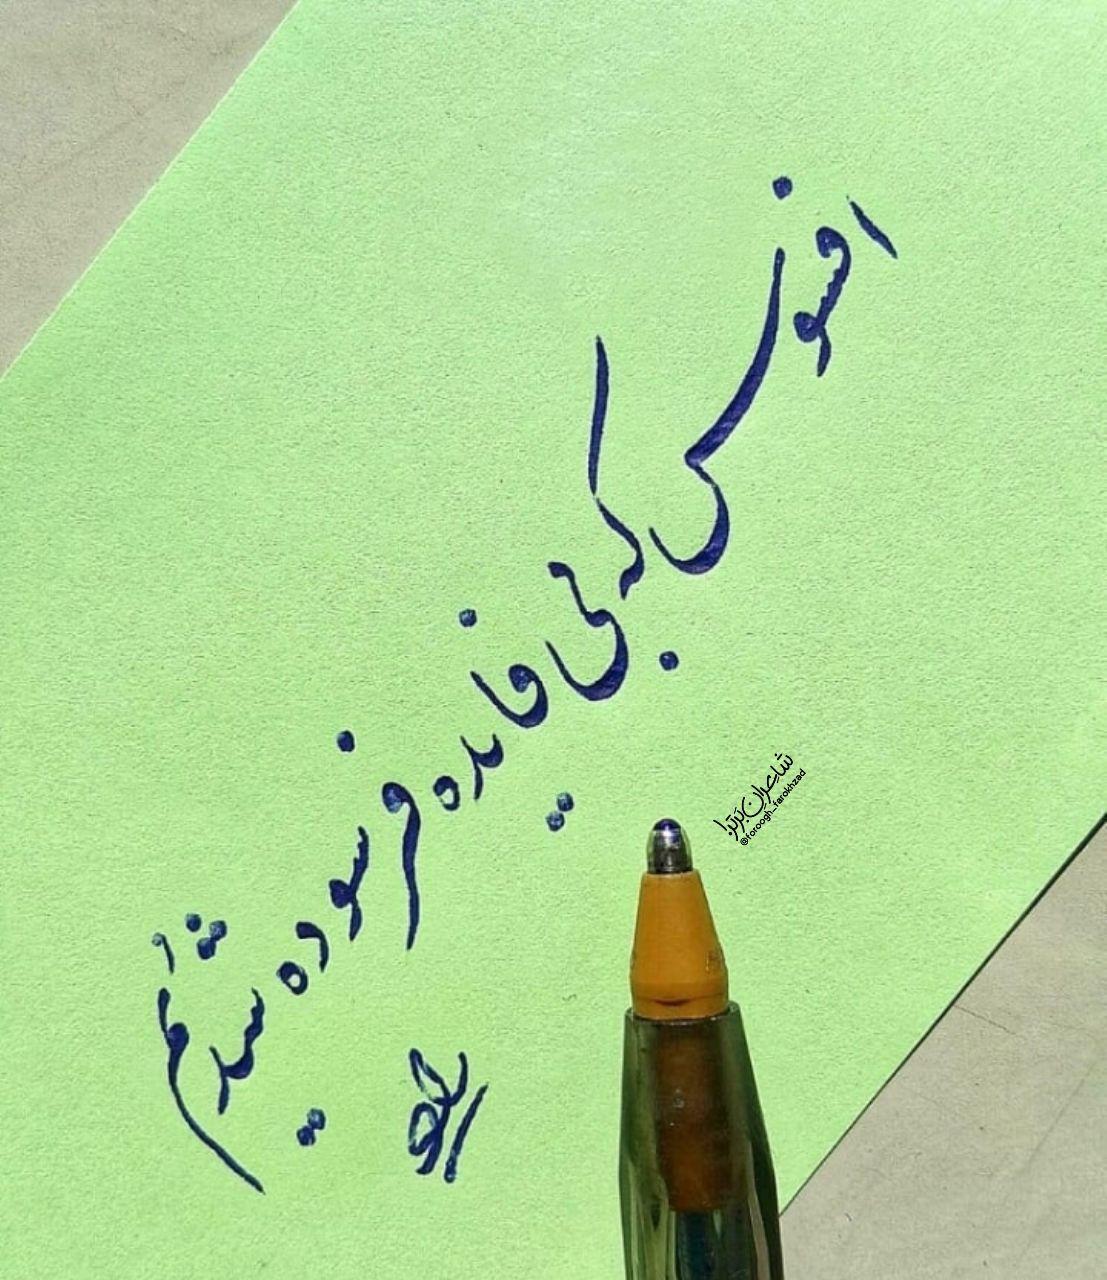 افسوس که بی فایده فرسوده شدیم
شاعران برتر
@foroogh_farokhzad